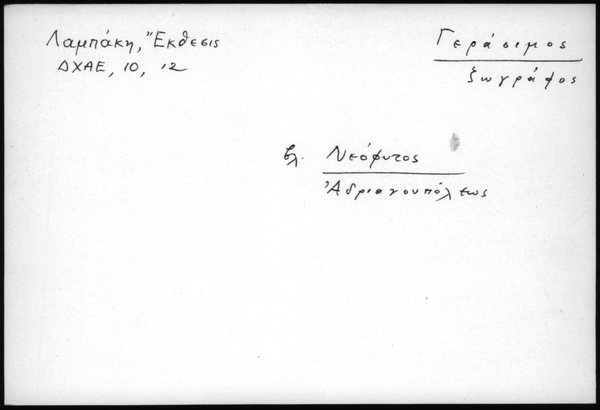 Λαμπάκη, Ἔκθεσις
ΔΧΑΕ, 10, 12
Γεράσιμος
ζωγράφος
βλ. Νεόφυτος
Ἀδριανουπόλεως